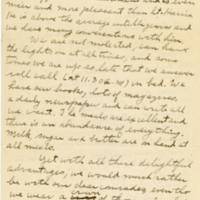 men and more pleasant than
is above the average intelligence and
we have many conversations with him.
We are not molested, can have
the lights on at all times, and some
times we are up so late that we answer
roll call (at 11.30 P.M.) in bed. We
have our books, lots of magazines,
a daily newspaper and can write all
we want. The meals are excellent and
there is an abundance of everything.
Milk, sugar and butter are on hand at
all meals.
Yet with all these delightful
advantages, we would much rather
be with our dear comrades even tho
we wear a